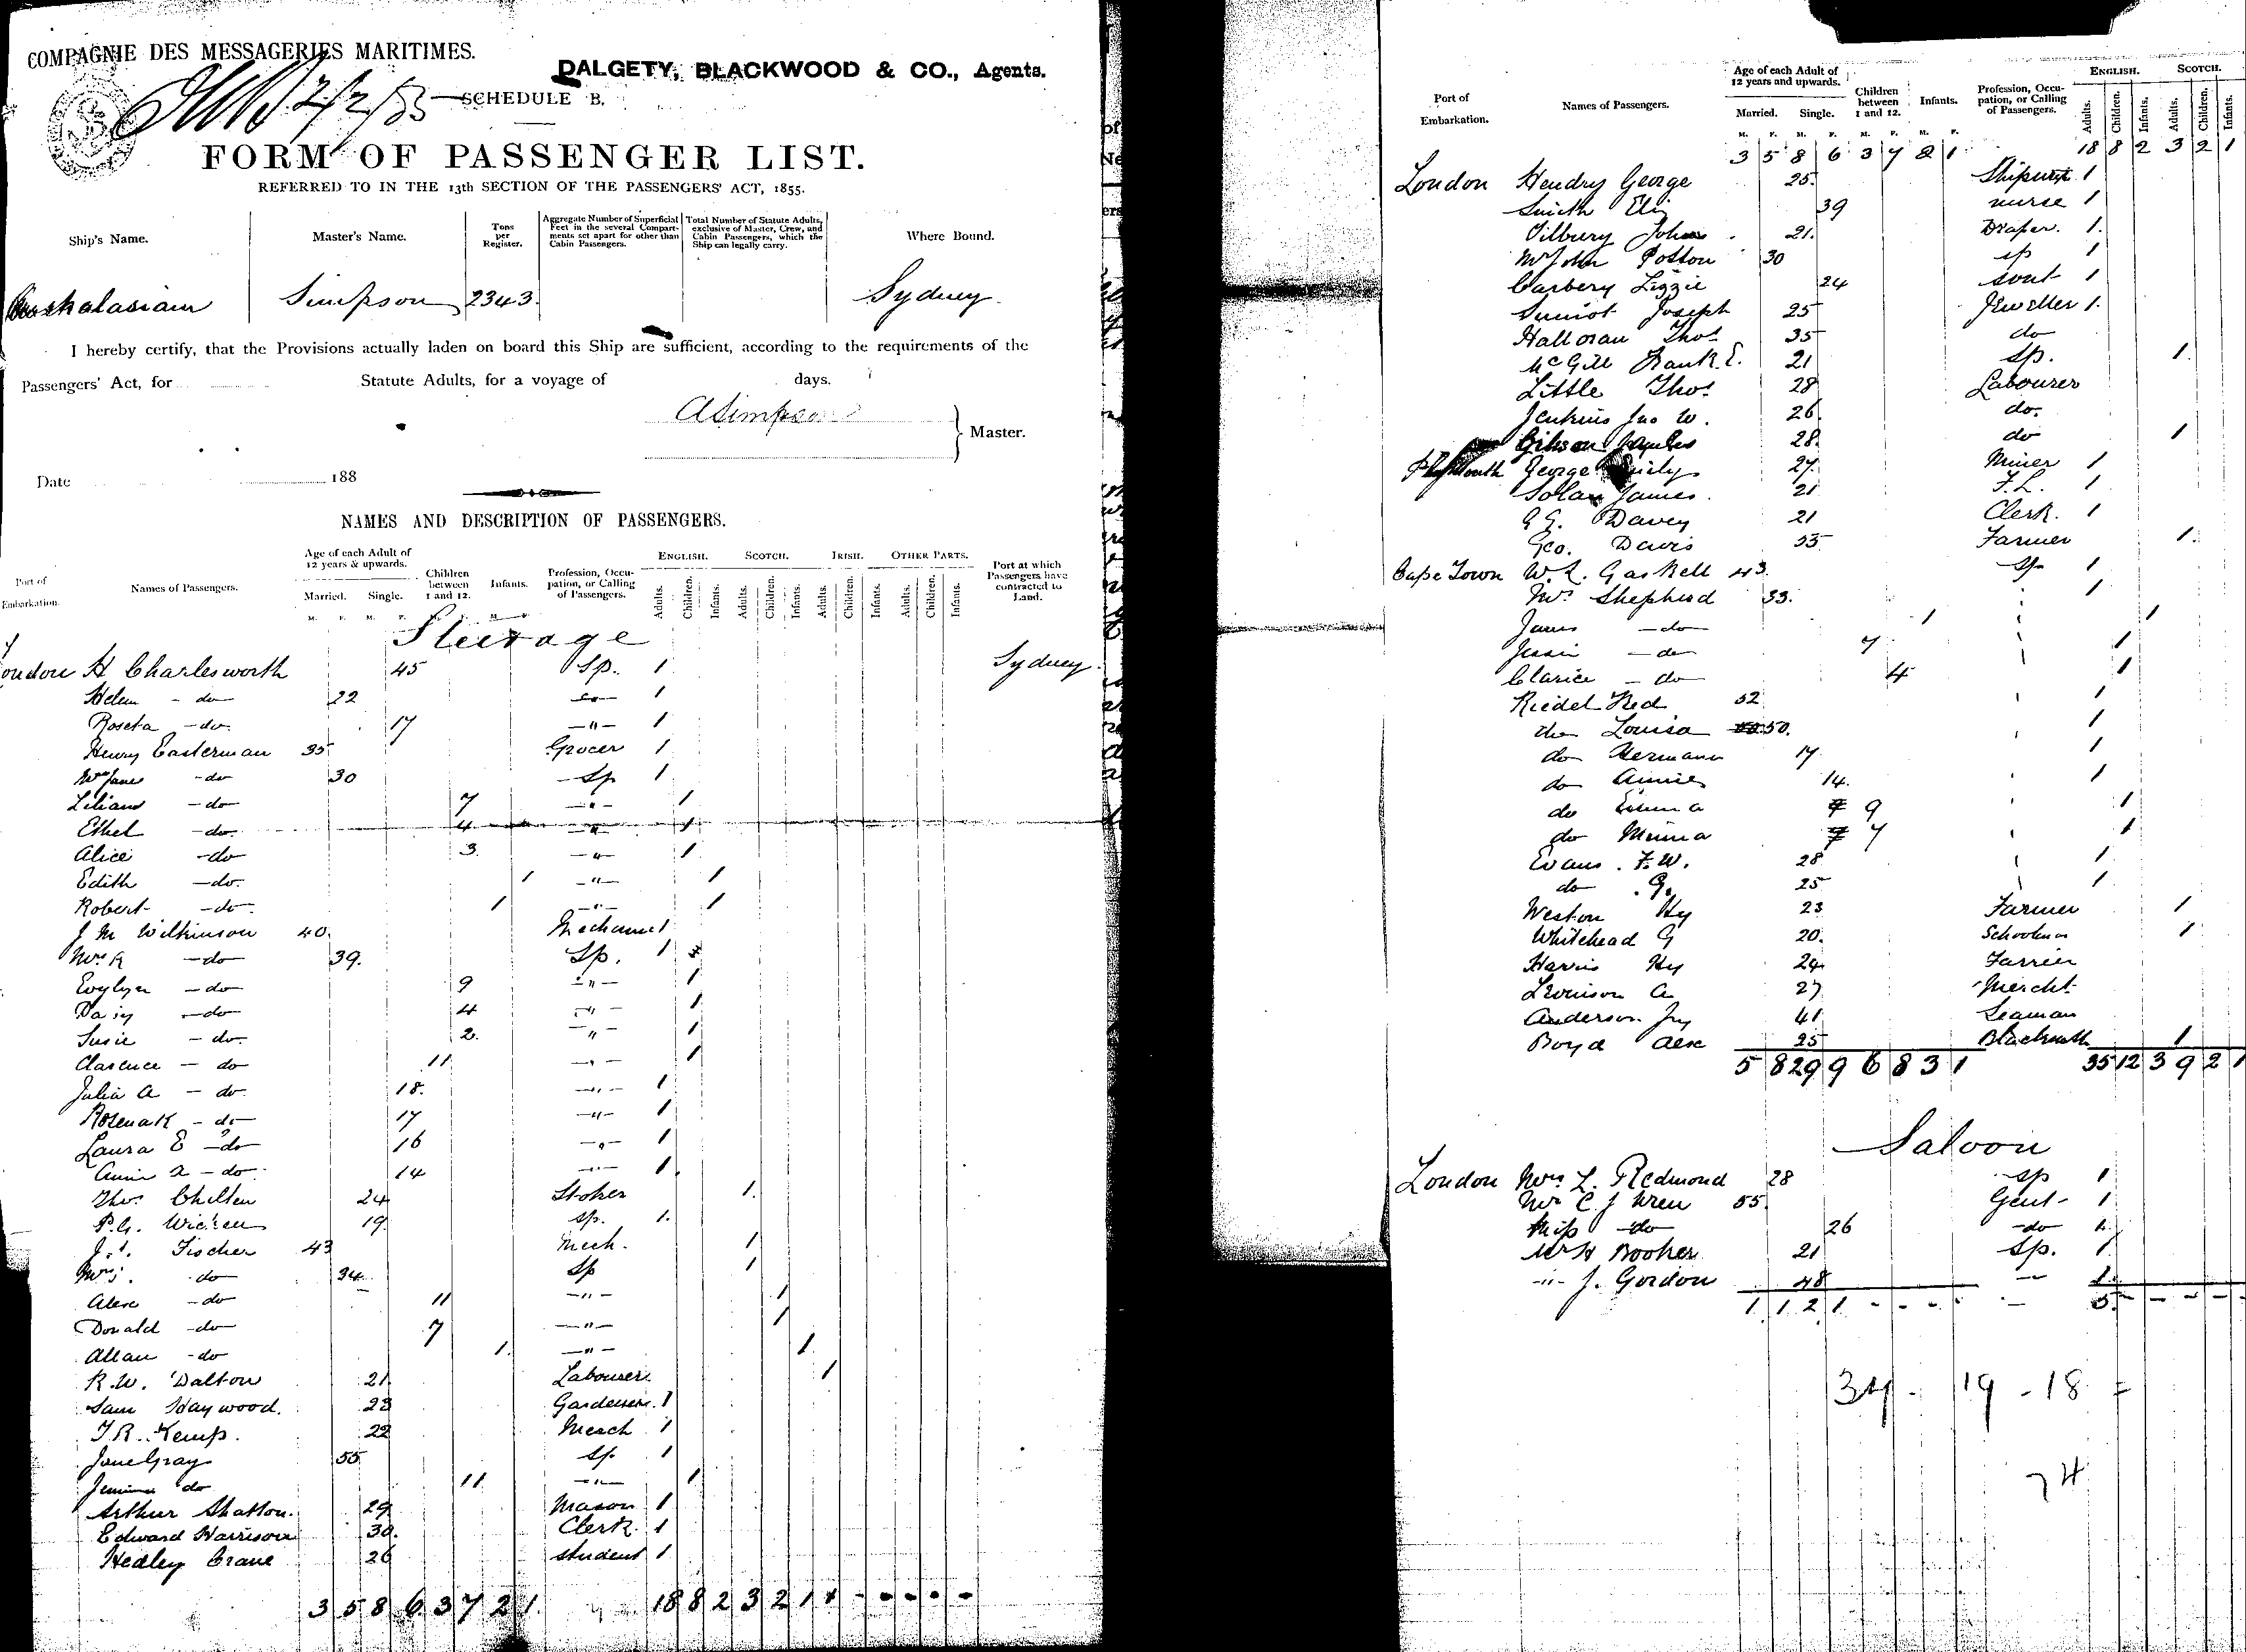 COMPAGNIE DES MESSAGERIES MARITIMES.
DALGETY, BLACKWOOD & CO., Agents.
SCHEDULE B.
FORM OF PASSENGER LIST.
REFERRED TO IN THE 13th SECTION OF THE PASSENGERS' ACT, 1855.
Ship's Name. Master's Name. Tons per Register. Aggregate Number of Superficial Feet in the several Compartments set apart for other than Cabin Passengers. Total Number of Statute Adults, exclusive of Master, Crew, and Cabin Passengers, which the Ship can legally carry. Where Bound.
Australasian Simpson 2343. Sydney
I hereby certify, that the Provisions actually laden on board this Ship are sufficient, according to the requirements of the
Passengers' Act, for Statute Adults, for a voyage of days.
A Simpson
Master.
Date 188
NAMES AND DESCRIPTION OF PASSENGERS.
Port of Embarkation. Names of Passengers. Age of each Adult of 12 years & upwards. Married. Single. Children between 1 and 12. Infants. Profession, Occupation, or Calling of Passengers. ENGLISH. SCOTCH. IRISH. OTHER PARTS. Port at which Passengers have contracted to Land.
M. F. M. F. M. F. M. F. Adults. Children. Infants. Adults. Children. Infants. Adults. Children. Infants. Adults. Children. Infants.
Steerage
London H Charlesworth 45 Sp. 1 Sydney
Helen - do 22 - do - 1
Roseta - do. 17 - " - 1
Henry Easterman 35 Grocer 1
Mrs Jane - do 30 Sp 1
Lilian - do 7 - " - 1
Ethel - do. 4 - " - 1
Alice - do 3. - " - 1
Edith - do. 1 - " - 1
Robert - do. 1 - " - 1
J M Wilkinson 40. Mechanic 1
Mrs R - do 39. Sp. 1
Evylyn - do 9 - " - 1
Daisy - do 4 - " - 1
Susie - do. 2. - " - 1
Clarence - do 11. - " - 1
Julia A - do. 18. - " - 1
Rosena K - do 17 - " - 1
Laura E - do 16 - " - 1
Annie A - do. 14 - " - 1.
Thos. Chilten 24 Stoker 1.
P.G. Wicken 19. Sp. 1.
Fischer 43 Mech. 1
Mrs. do 34 Sp 1
Alex - do 11 - " - 1
Donald - do 7 - " - 1
Allan - do 1. - " - 1
R.W. Dalton 21. Labourer. 1
Sam Haywood. 23 Gardener. 1
T.R. Kemp. 22 Meach 1
Jane Gray 55 Sp. 1
Jemima do 11. - " - 1
Arthur Shatton. 29 Mason 1
Edward Harrison 30. Clerk. 1
Hedley Crane 26 student 1
3 5 8 6 3 7 2 1. 18 8 2 3 2 1 1 - - - - -
Port of Embarkation. Names of Passengers. Age of each Adult of 12 years and upwards. Married. Single. Children between 1 and 12. Infants. Profession, Occupation, or Calling of Passengers. ENGLISH. SCOTCH.
M. F. M. F. M. F. M. F. Adults. Children. Infants. Adults. Children. Infants.
3 5 8 6 3 7 2 1. 18 8 2 3 2 1
London Hendry George 25. 1
Smith Eliz 39 nurse 1
Tilbury John 21. Draper. 1.
Mrs John Potton 30 sp 1
Carbery Lizzie 24 svnt 1
Joseph 25 Jeweller 1.
Halloran Thos 35 do
McGill Frank E. 21 Sp. 1.
Little Thos 28 Labourer
Jenkins Jno W. 26. do.
Gibson 28. do 1
Plymouth George 27. Miner 1
James. 21 F.L. 1
Davey 21 Clerk. 1
Geo. Davis 35 Farmer 1.
Cape Town W.L. Gaskell 43. Sp 1
Mrs Shepherd 33. 1
James - do 1 1
Jessie - do 7 1
Clarice - do 4 1
Riedel Fred 52 1
do Louisa 50. 1
do Hermann 17. 1
do Annie 14. 1
do Emma 9 1
do Minna 7 1
Evans. F.W. 28 1
do. G. 25 1
Weston Hy 23 Farmer 1
Whitehead G 20. Schoolman 1
Harris Hy 24 Farrier
Levinson A 27 Mercht.
Anderson Jny 41 Seaman
Boyd Alex 25 Blacksmith 1
5 8 29 9 6 8 3 1 35 12 3 9 2 1
Saloon
London Mrs L. Redmond 28 sp 1
Mr C J Wren 55. Gent- 1
Miss do 26 - do 1.
Mr H Booker 21 Sp. 1
- " - J. Gordon 48 - 1.
1. 1. 2 1. - - - - - 5. - - - - -
34 - 19 - 18 =
74